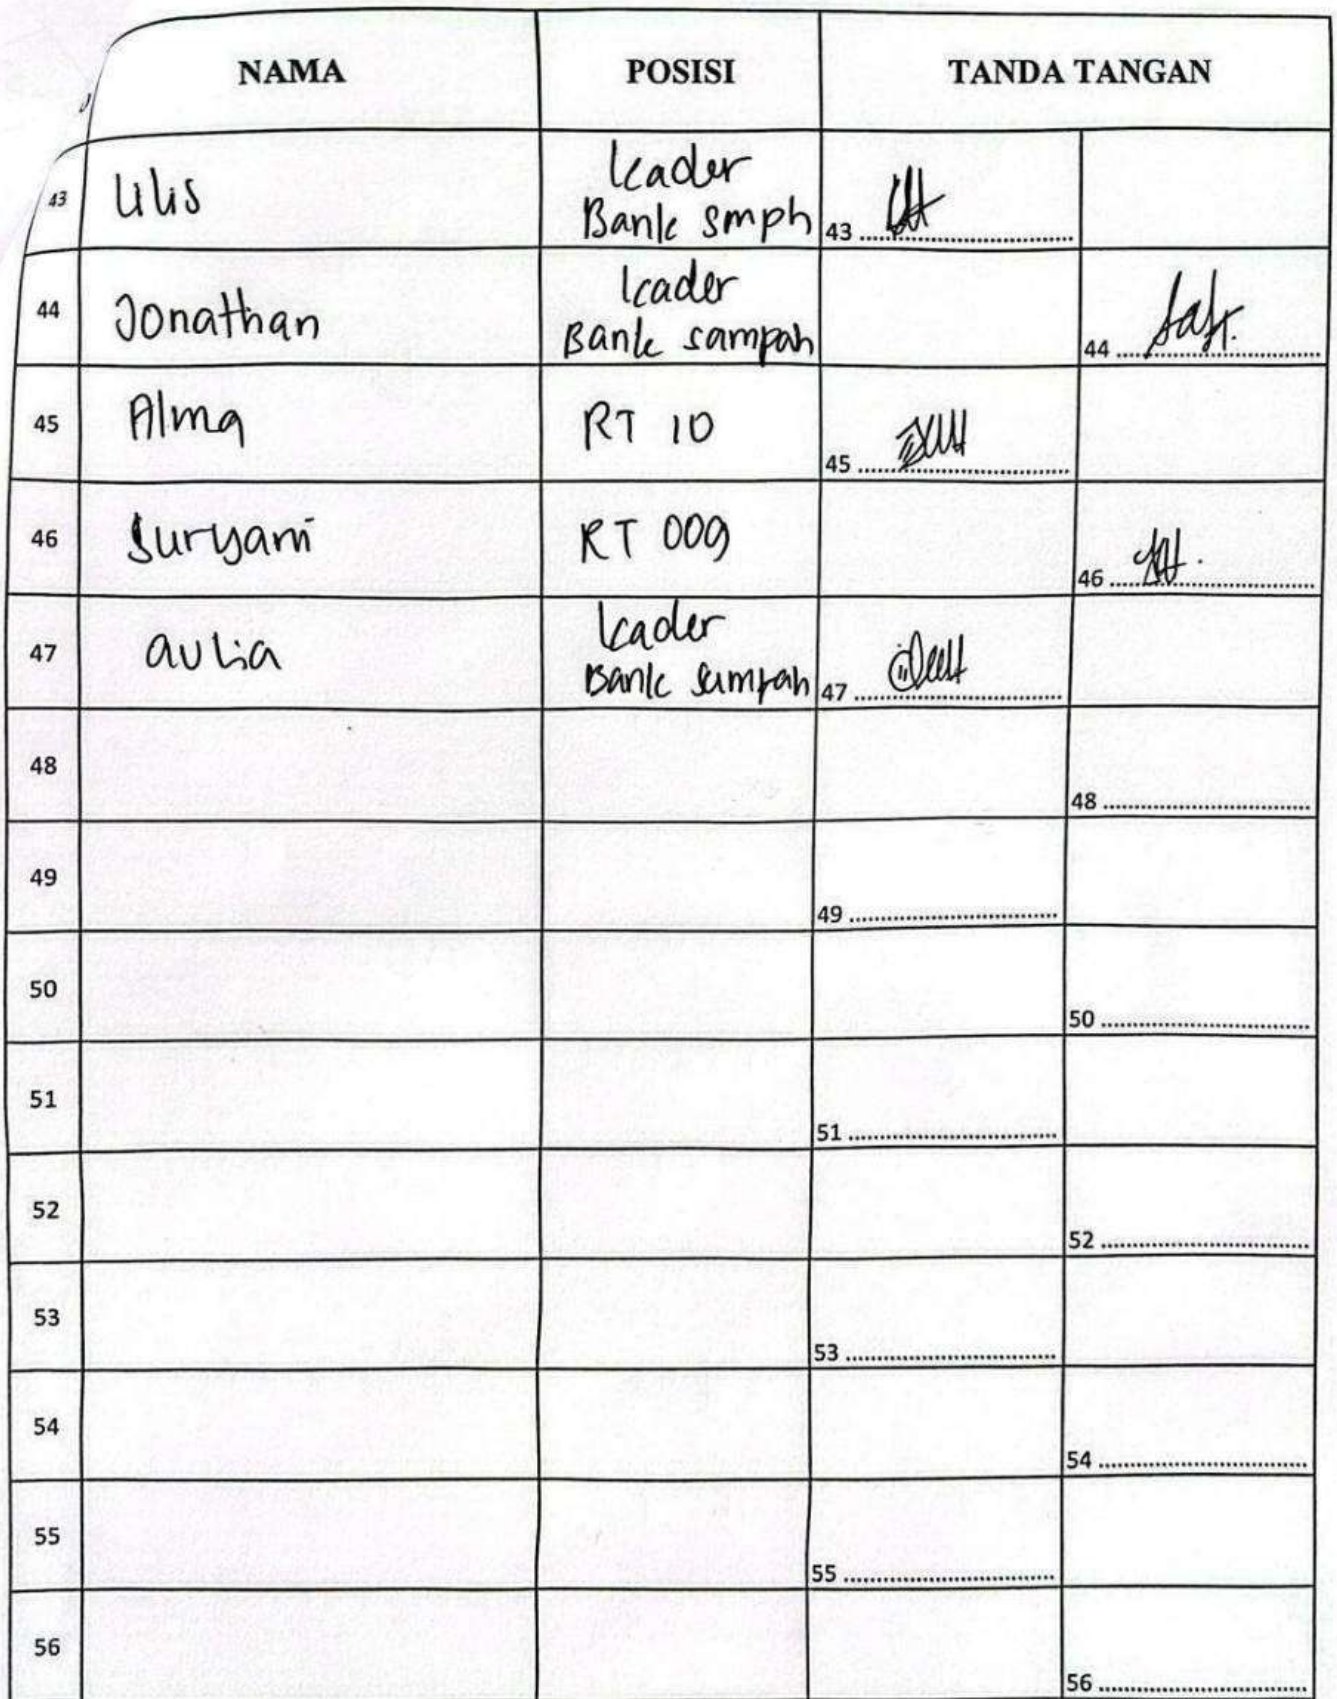 NAMA POSISI TANDA TANGAN
43 Lilis Kader
Bank smph 43
44 Jonathan Kader
Bank sampah 44
45 Alma RT 10 45
46 Suryani RT 009 46
47 aulia Kader
Bank sampah 47
48 48
49 49
50 50
51 51
52 52
53 53
54 54
55 55
56 56